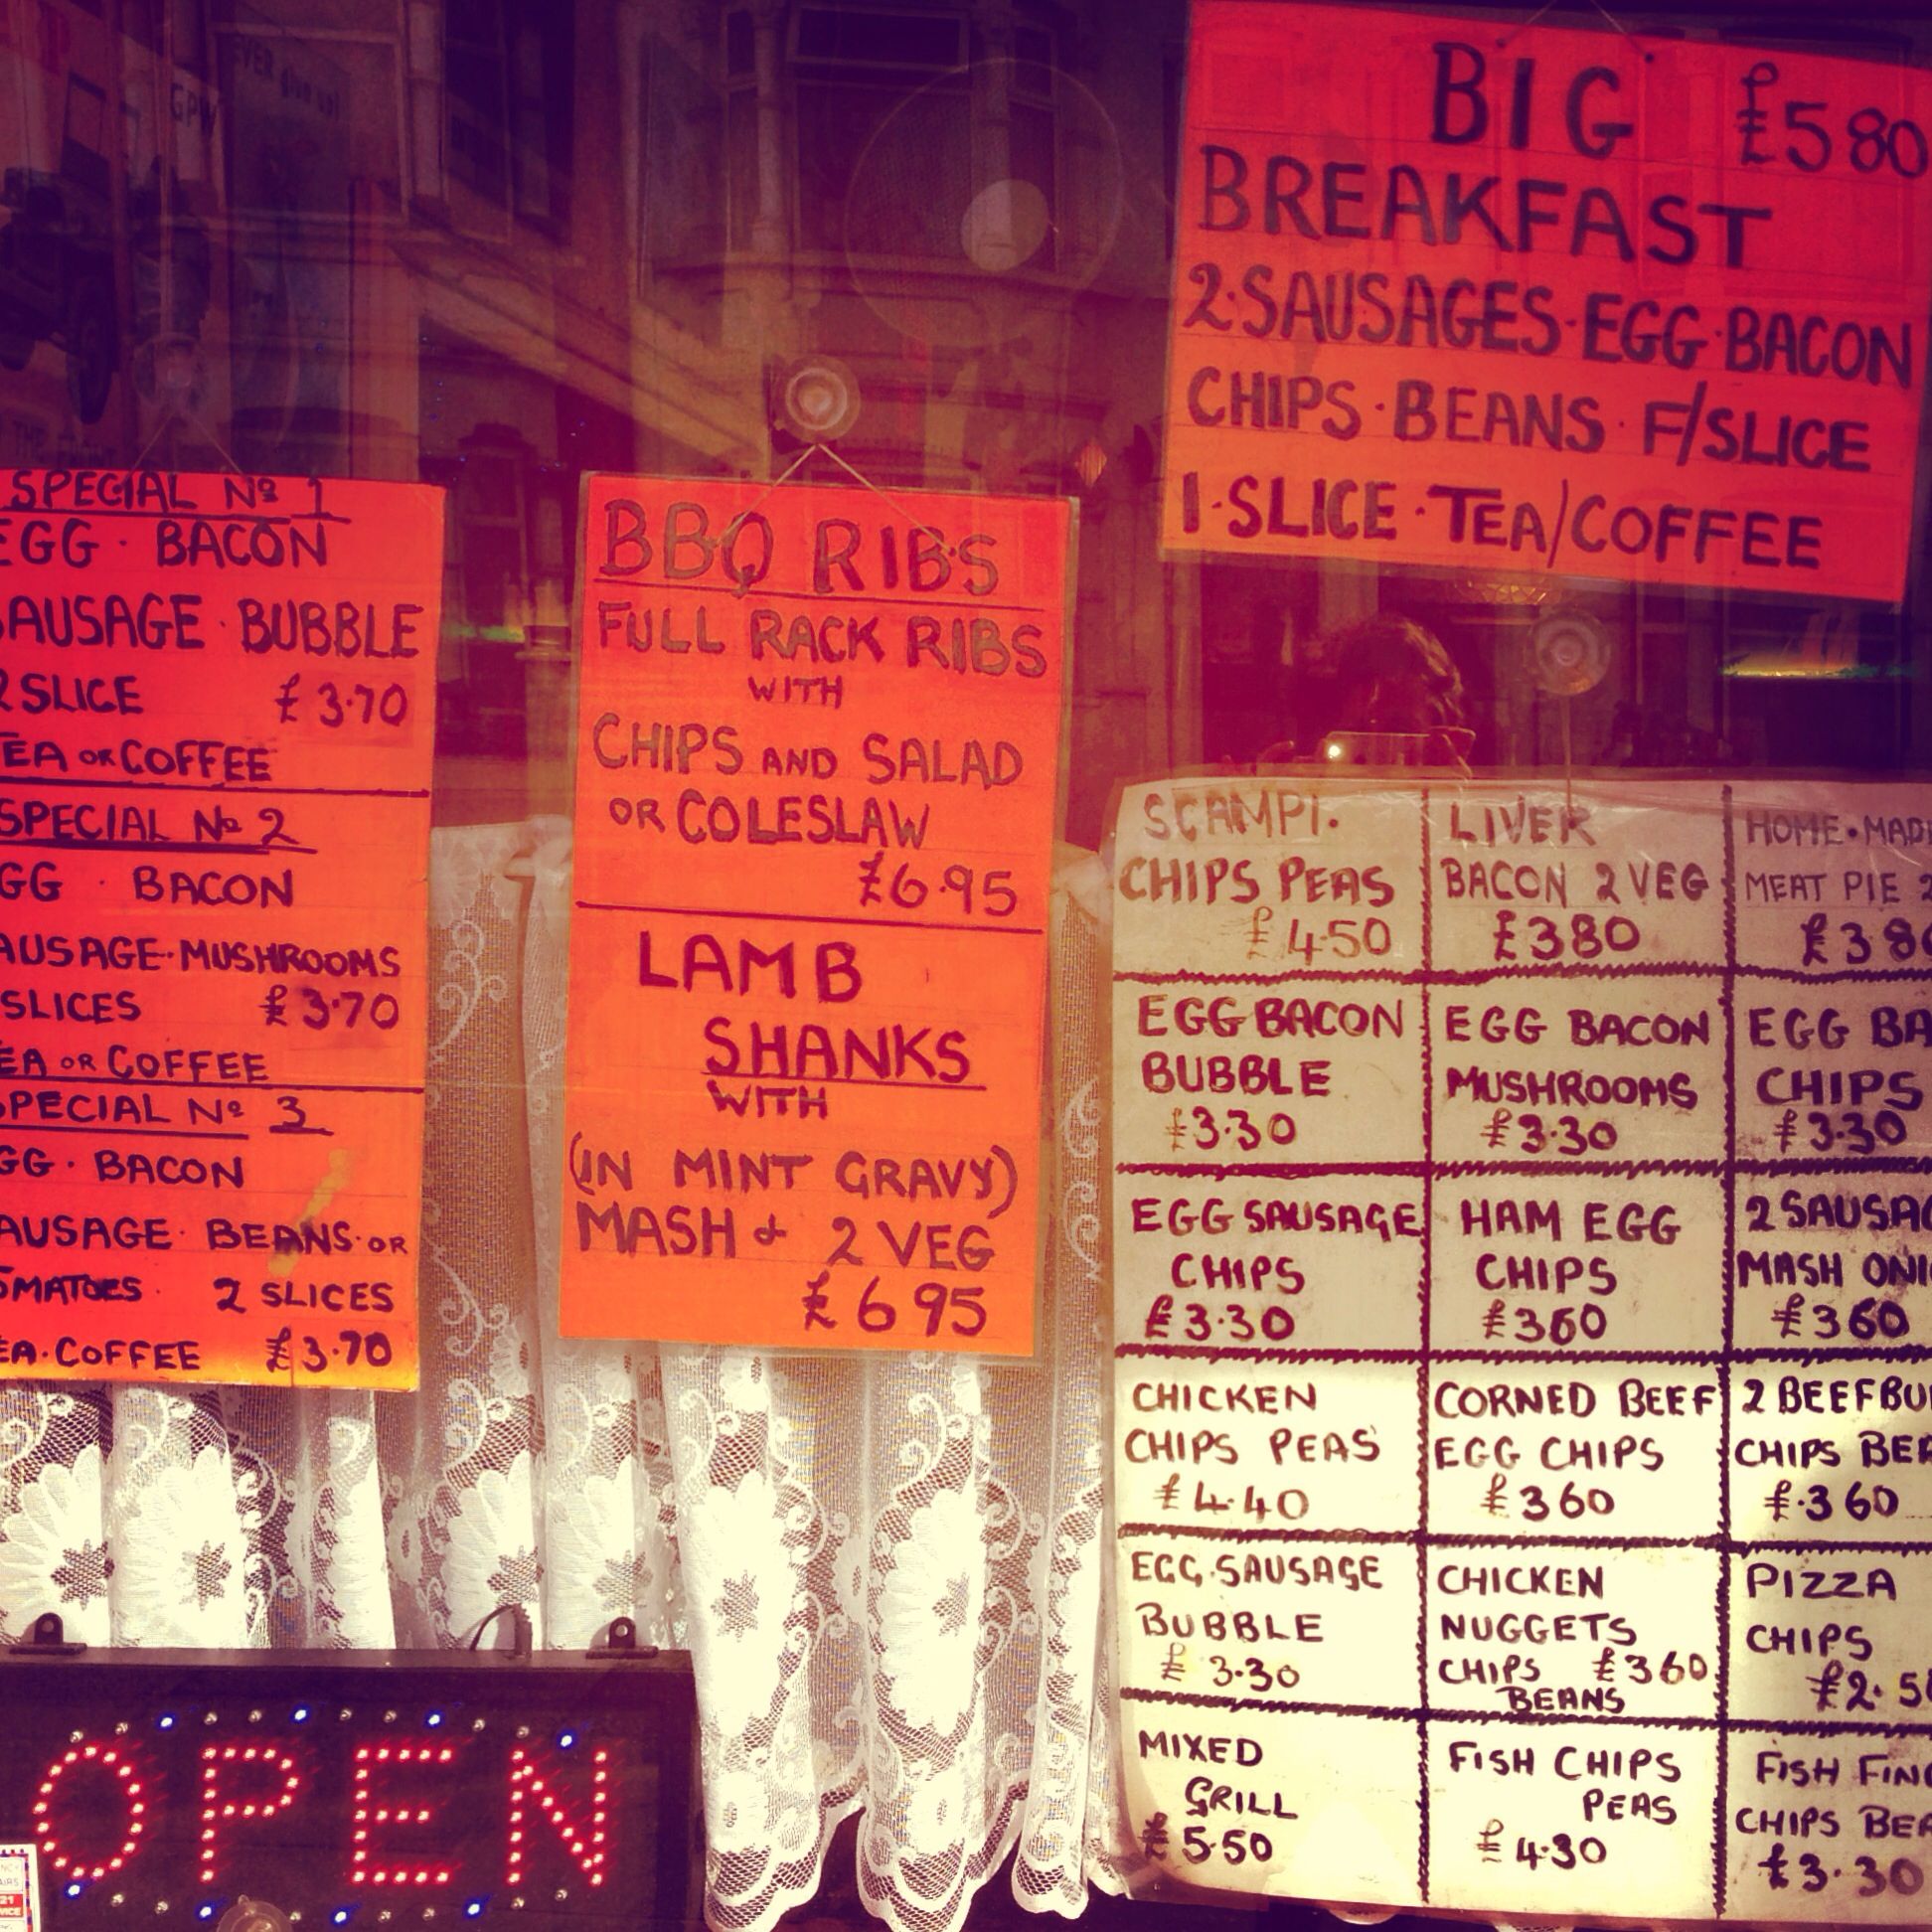 SPECIAL Nº 1
EGG · BACON
SAUSAGE · BUBBLE
2 SLICE £3·70
TEA OR COFFEE
SPECIAL Nº 2
GG · BACON
AUSAGE · MUSHROOMS
SLICES £3·70
EA OR COFFEE
SPECIAL Nº 3
GG · BACON
AUSAGE · BEANS · OR
OMATOES · 2 SLICES
EA · COFFEE £3·70
BBQ RIBS
FULL RACK RIBS
WITH
CHIPS AND SALAD
OR COLESLAW
£6·95
LAMB
SHANKS
WITH
(IN MINT GRAVY)
MASH & 2 VEG
£6 95
BIG £5 80
BREAKFAST
2·SAUSAGES·EGG·BACON
CHIPS·BEANS·F/SLICE
1·SLICE·TEA/COFFEE
SCAMPI·
CHIPS PEAS
£4·50
LIVER
BACON 2 VEG
£3 80
HOME·MAD
MEAT PIE 2
£3 80
EGG BACON
BUBBLE
£3·30
EGG BACON
MUSHROOMS
£3·30
EGG BA
CHIPS
£3·30
EGG SAUSAGE
CHIPS
£3·30
HAM EGG
CHIPS
£3 60
2 SAUSAG
MASH ONI
£3 60
CHICKEN
CHIPS PEAS
£4·40
CORNED BEEF
EGG CHIPS
£3 60
2 BEEFBU
CHIPS BEA
£·3 60
EGG·SAUSAGE
BUBBLE
£3·30
CHICKEN
NUGGETS
CHIPS £3 60
BEANS
PIZZA
CHIPS
£2·50
MIXED
GRILL
£5·50
FISH CHIPS
PEAS
£4·30
FISH FING
CHIPS BEA
£3·30
OPEN